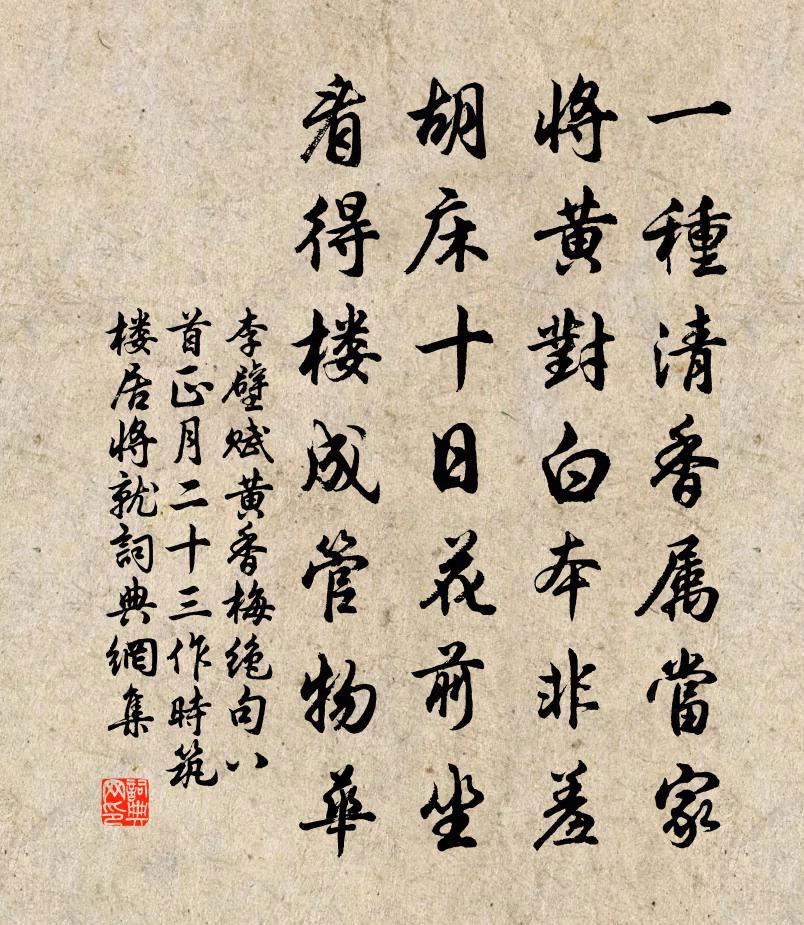 一種清香属當家
将黄對白本非羞
胡床十日花前坐
看得楼成管物華
李壁赋黄香梅绝句八
首正月二十三作時筑
楼居将就詞典網集
詞典网印